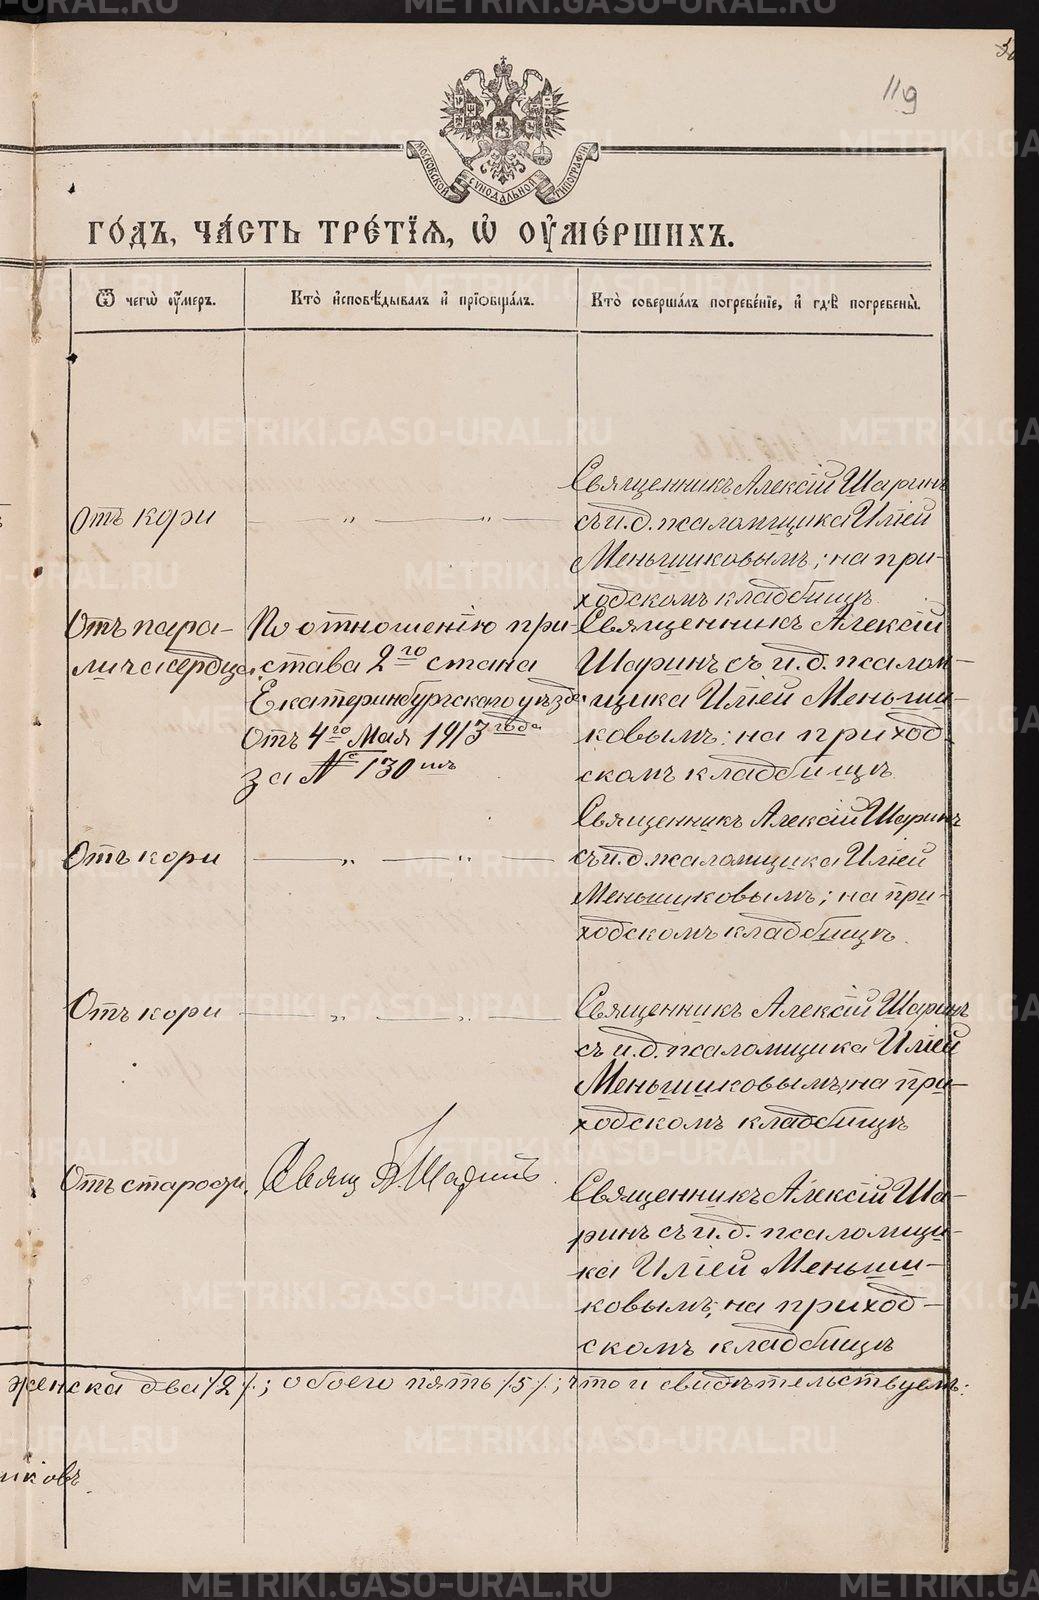 119
МОСКОВСКОЙ СѴНОДАЛЬНОЙ ТИПОГРАФІИ
ГО́ДЪ, ЧА́СТЬ ТРЕ́ТІЯ, Ѡ҆ ОУ҆МЕ́РШИХЪ.
Ѿ чегѡ̀ оу҆́меръ.
Кто̀ и҆сповѣ́дывалъ и҆ прїѡбща́лъ.
Кто̀ соверша́лъ погребе́нїе, и҆ гдѣ̀ погребены̀.
Отъ кори
— „ — „ —
Священникъ Алексій Шаринъ
съ и.д. псаломщика Иліей
Меньшиковымъ; на при-
ходскомъ кладбищѣ
Отъ пара-
лича сердца.
По отношенію при-
става 2го стана
Екатеринбургскаго уѣзда
Отъ 4го Мая 1913 года
за № 130мъ
Священникъ Алексій
Шаринъ съ и.д. псалом-
щика Иліей Меньши-
ковымъ: на приход-
скомъ кладбищѣ
Отъ кори
— „ — „ —
Священникъ Алексій Шаринъ
съ и.д. псаломщика Иліей
Меньшиковымъ; на при-
ходскомъ кладбищѣ.
Отъ кори
— „ — „ —
Священникъ Алексій Шаринъ
съ и.д. псаломщика Иліей
Меньшиковымъ; на при-
ходскомъ кладбищѣ
Отъ старости.
Свящ А. Шаринъ.
Священникъ Алексій Ша-
ринъ съ и.д. псаломщи-
ка Иліей Меньши-
ковымъ; на приход-
скомъ кладбищѣ
женска два /2/.; обоего пять /5/.; что и свидѣтельствуемъ:
иковъ.
METRIKI.GASO-URAL.RU